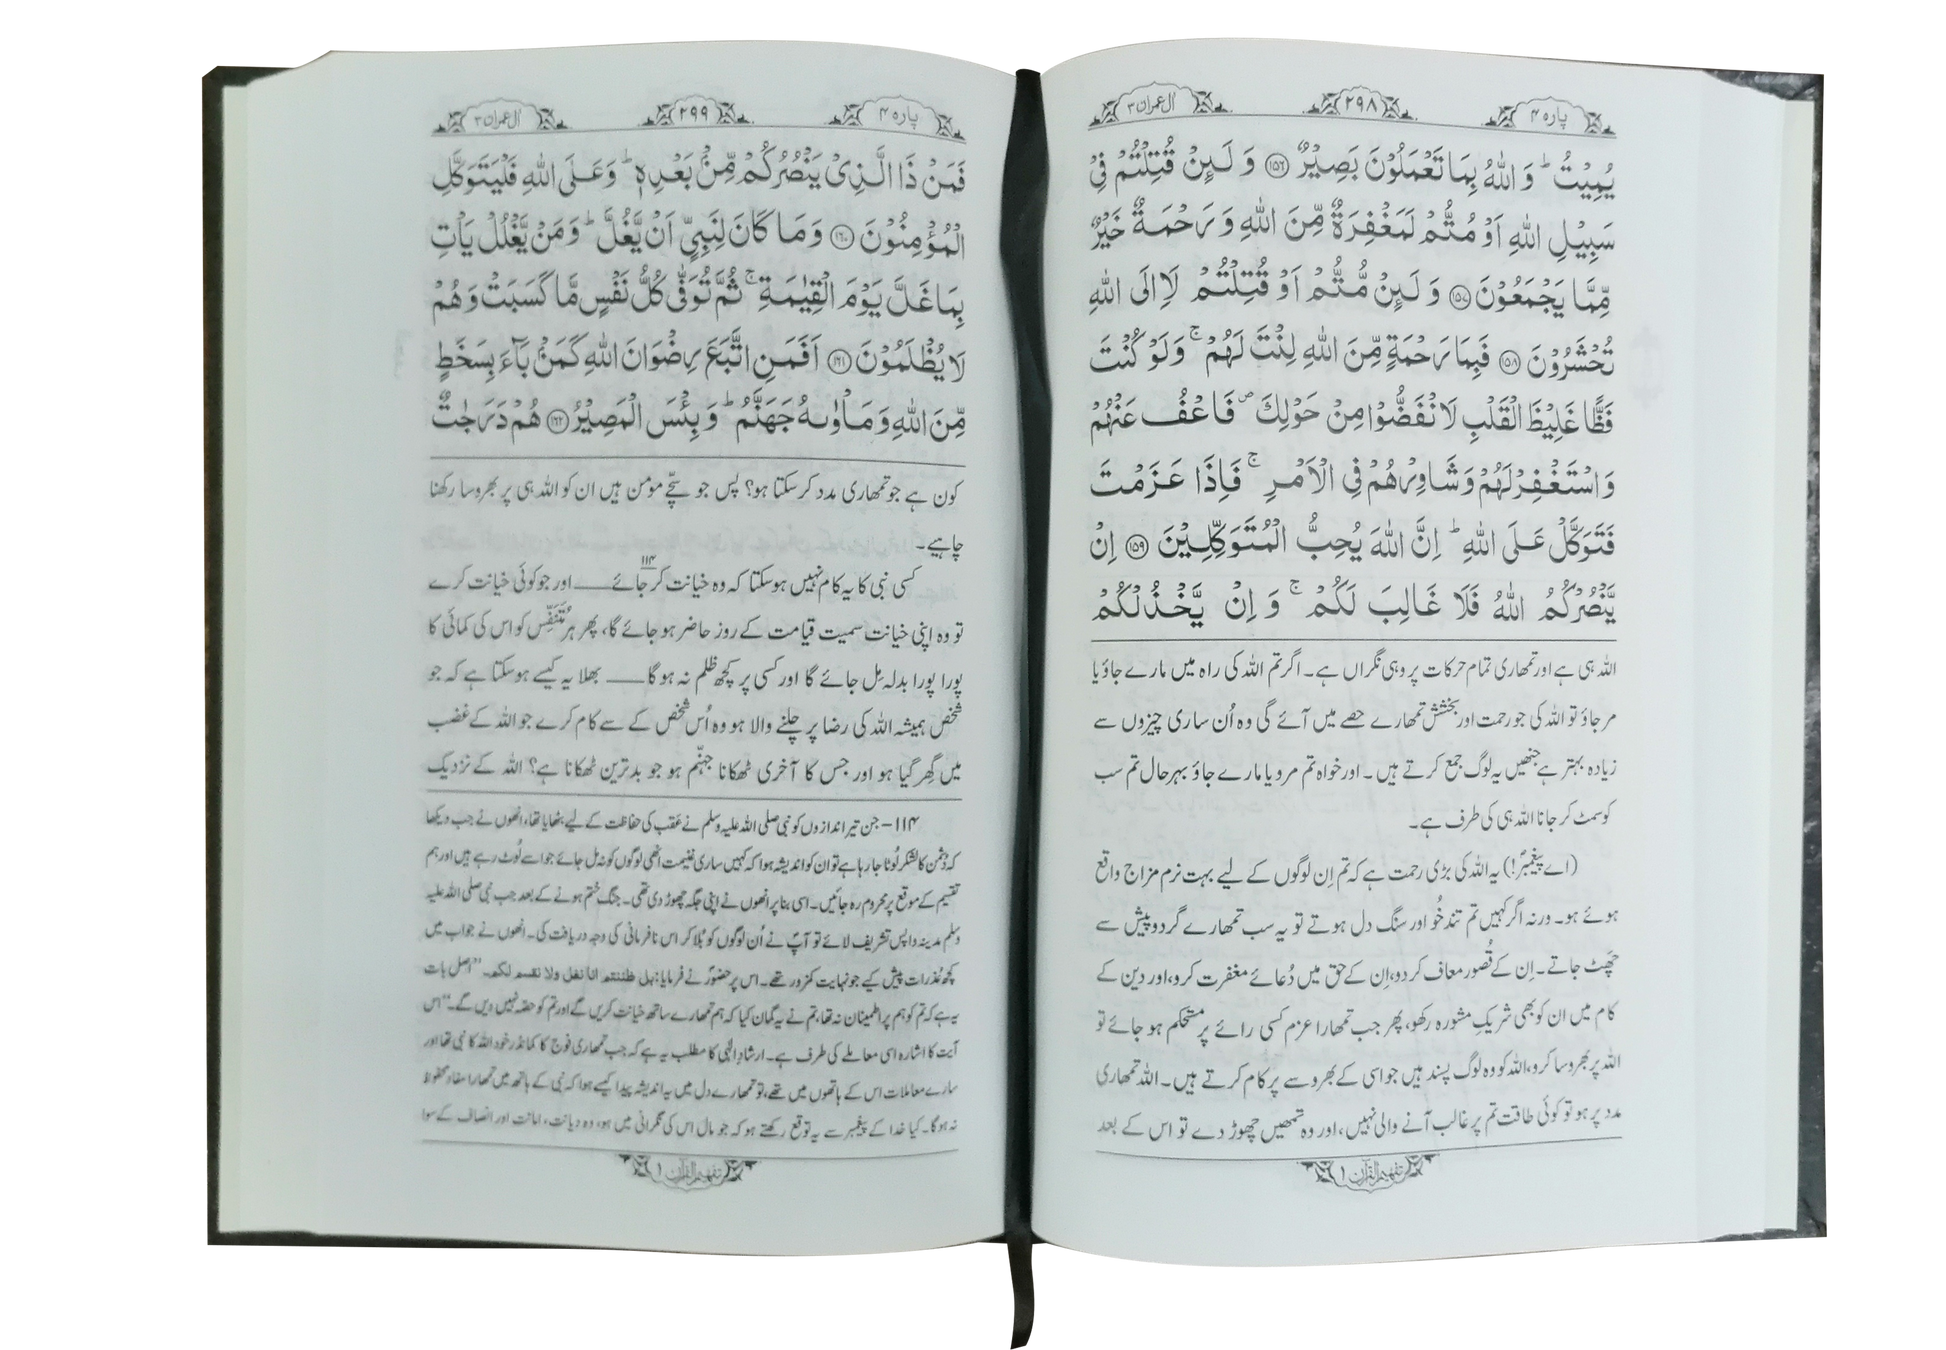 پارہ ۴
۲۹۸
اٰل عمران ۳
يُمِيْتُ ؕ وَ اللّٰهُ بِمَا تَعْمَلُوْنَ بَصِيْرٌ ﴿۱۵۶﴾ وَ لَىِٕنْ قُتِلْتُمْ فِيْ
سَبِيْلِ اللّٰهِ اَوْ مُتُّمْ لَمَغْفِرَةٌ مِّنَ اللّٰهِ وَ رَحْمَةٌ خَيْرٌ
مِّمَّا يَجْمَعُوْنَ ﴿۱۵۷﴾ وَ لَىِٕنْ مُّتُّمْ اَوْ قُتِلْتُمْ لَاۡاِلَى اللّٰهِ
تُحْشَرُوْنَ ﴿۱۵۸﴾ فَبِمَا رَحْمَةٍ مِّنَ اللّٰهِ لِنْتَ لَهُمْ ۚ وَ لَوْ كُنْتَ
فَظًّا غَلِيْظَ الْقَلْبِ لَانْفَضُّوْا مِنْ حَوْلِكَ ۪ فَاعْفُ عَنْهُمْ
وَ اسْتَغْفِرْ لَهُمْ وَ شَاوِرْهُمْ فِي الْاَمْرِ ۚ فَاِذَا عَزَمْتَ
فَتَوَكَّلْ عَلَى اللّٰهِ ؕ اِنَّ اللّٰهَ يُحِبُّ الْمُتَوَكِّلِيْنَ ﴿۱۵۹﴾ اِنْ
يَّنْصُرْكُمُ اللّٰهُ فَلَا غَالِبَ لَكُمْ ۚ وَ اِنْ يَّخْذُلْكُمْ
اللہ ہی ہے اور تمھاری تمام حرکات پر وہی نگراں ہے۔ اگر تم اللہ کی راہ میں مارے جاؤ یا
مر جاؤ تو اللہ کی جو رحمت اور بخشش تمھارے حصے میں آئے گی وہ اُن ساری چیزوں سے
زیادہ بہتر ہے جنھیں یہ لوگ جمع کرتے ہیں۔ اور خواہ تم مرو یا مارے جاؤ بہرحال تم سب
کو سمٹ کر جانا اللہ ہی کی طرف ہے۔
(اے پیغمبرؐ!) یہ اللہ کی بڑی رحمت ہے کہ تم اِن لوگوں کے لیے بہت نرم مزاج واقع
ہوئے ہو۔ ورنہ اگر کہیں تم تندخُو اور سنگ دل ہوتے تو یہ سب تمھارے گردوپیش سے
چَھٹ جاتے۔ اِن کے قُصور معاف کر دو، اِن کے حق میں دُعائے مغفرت کرو، اور دین کے
کام میں ان کو بھی شریکِ مشورہ رکھو، پھر جب تمھارا عزم کسی رائے پر مستحکم ہو جائے تو
اللہ پر بھروسا کرو، اللہ کو وہ لوگ پسند ہیں جو اسی کے بھروسے پر کام کرتے ہیں۔ اللہ تمھاری
مدد پر ہو تو کوئی طاقت تم پر غالب آنے والی نہیں، اور وہ تمھیں چھوڑ دے تو اس کے بعد
تفہیم القرآن ۱
پارہ ۴
۲۹۹
اٰل عمران ۳
فَمَنْ ذَا الَّذِيْ يَنْصُرُكُمْ مِّنْۢ بَعْدِهٖ ؕ وَ عَلَى اللّٰهِ فَلْيَتَوَكَّلِ
الْمُؤْمِنُوْنَ ﴿۱۶۰﴾ وَ مَا كَانَ لِنَبِيٍّ اَنْ يَّغُلَّ ؕ وَ مَنْ يَّغْلُلْ يَاْتِ
بِمَا غَلَّ يَوْمَ الْقِيٰمَةِ ۚ ثُمَّ تُوَفّٰى كُلُّ نَفْسٍ مَّا كَسَبَتْ وَ هُمْ
لَا يُظْلَمُوْنَ ﴿۱۶۱﴾ اَفَمَنِ اتَّبَعَ رِضْوَانَ اللّٰهِ كَمَنْۢ بَآءَ بِسَخَطٍ
مِّنَ اللّٰهِ وَ مَاْوٰىهُ جَهَنَّمُ ؕ وَ بِئْسَ الْمَصِيْرُ ﴿۱۶۲﴾ هُمْ دَرَجٰتٌ
کون ہے جو تمھاری مدد کر سکتا ہو؟ پس جو سچّے مومن ہیں ان کو اللہ ہی پر بھروسا رکھنا
چاہیے۔
کسی نبی کا یہ کام نہیں ہو سکتا کہ وہ خیانت کر جائے ۱۱۴ــــ اور جو کوئی خیانت کرے
تو وہ اپنی خیانت سمیت قیامت کے روز حاضر ہو جائے گا، پھر ہر مُتَنَفِّس کو اس کی کمائی کا
پورا پورا بدلہ مِل جائے گا اور کسی پر کچھ ظلم نہ ہوگا ــــ بھلا یہ کیسے ہو سکتا ہے کہ جو
شخص ہمیشہ اللہ کی رضا پر چلنے والا ہو وہ اُس شخص کے سے کام کرے جو اللہ کے غضب
میں گِھر گیا ہو اور جس کا آخری ٹھکانا جہنّم ہو جو بدترین ٹھکانا ہے؟ اللہ کے نزدیک
۱۱۴- جن تیراندازوں کو نبی صلی اللہ علیہ وسلم نے عَقب کی حفاظت کے لیے بٹھایا تھا، انھوں نے جب دیکھا
کہ دشمن کا لشکر لُوٹا جا رہا ہے تو ان کو اندیشہ ہوا کہ کہیں ساری غنیمت انھی لوگوں کو نہ مل جائے جو اسے لُوٹ رہے ہیں اور ہم
تقسیم کے موقع پر محروم رہ جائیں۔ اسی بنا پر انھوں نے اپنی جگہ چھوڑ دی تھی۔ جنگ ختم ہونے کے بعد جب نبی صلی اللہ علیہ
وسلم مدینہ واپس تشریف لائے تو آپؐ نے اُن لوگوں کو بُلا کر اس نافرمانی کی وجہ دریافت کی۔ انھوں نے جواب میں
کچھ عُذرات پیش کیے جو نہایت کمزور تھے۔ اس پر حضورؐ نے فرمایا: بل ظننتم انا نغل ولا نقسم لکم۔ ”اصل بات
یہ ہے کہ تم کو ہم پر اطمینان نہ تھا، تم نے یہ گمان کیا کہ ہم تمھارے ساتھ خیانت کریں گے اور تم کو حصّہ نہیں دیں گے۔“ اس
آیت کا اشارہ اسی معاملے کی طرف ہے۔ ارشادِ الٰہی کا مطلب یہ ہے کہ جب تمھاری فوج کا کمانڈر خود اللہ کا نبی تھا اور
سارے معاملات اس کے ہاتھوں میں تھے، تو تمھارے دل میں یہ اندیشہ پیدا کیسے ہوا کہ نبی کے ہاتھ میں تمھارا مفاد محفوظ
نہ ہوگا۔ کیا خدا کے پیغمبر سے یہ توقع رکھتے ہو کہ جو مال اس کی نگرانی میں ہو، وہ دیانت، امانت اور انصاف کے سوا
تفہیم القرآن ۱